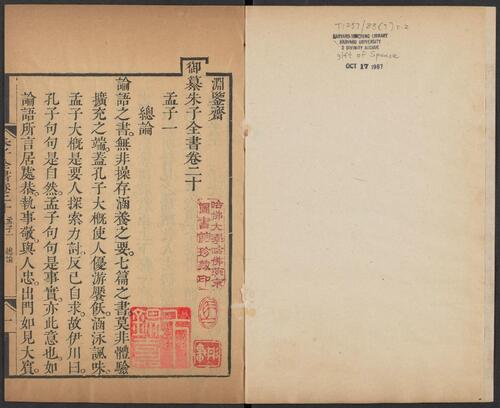 淵鑒齋
御纂朱子全書卷二十
孟子一
總論
論語之書無非操存涵養之要七篇之書莫非體驗
擴充之端蓋孔子大槪使人優游饜飫涵泳諷味
孟子大槪是要人探索力討反己自求故伊川曰
孔子句句是自然孟子句句是事實亦此意也如
論語所言居處恭執事敬與人忠出門如見大賓
哈佛大學哈佛燕京
圖書館珍藏印
HARVARD-YENCHING LIBRARY
HARVARD UNIVERSITY
2 DIVINITY AVENUE
gift of Spence
OCT 17 1967